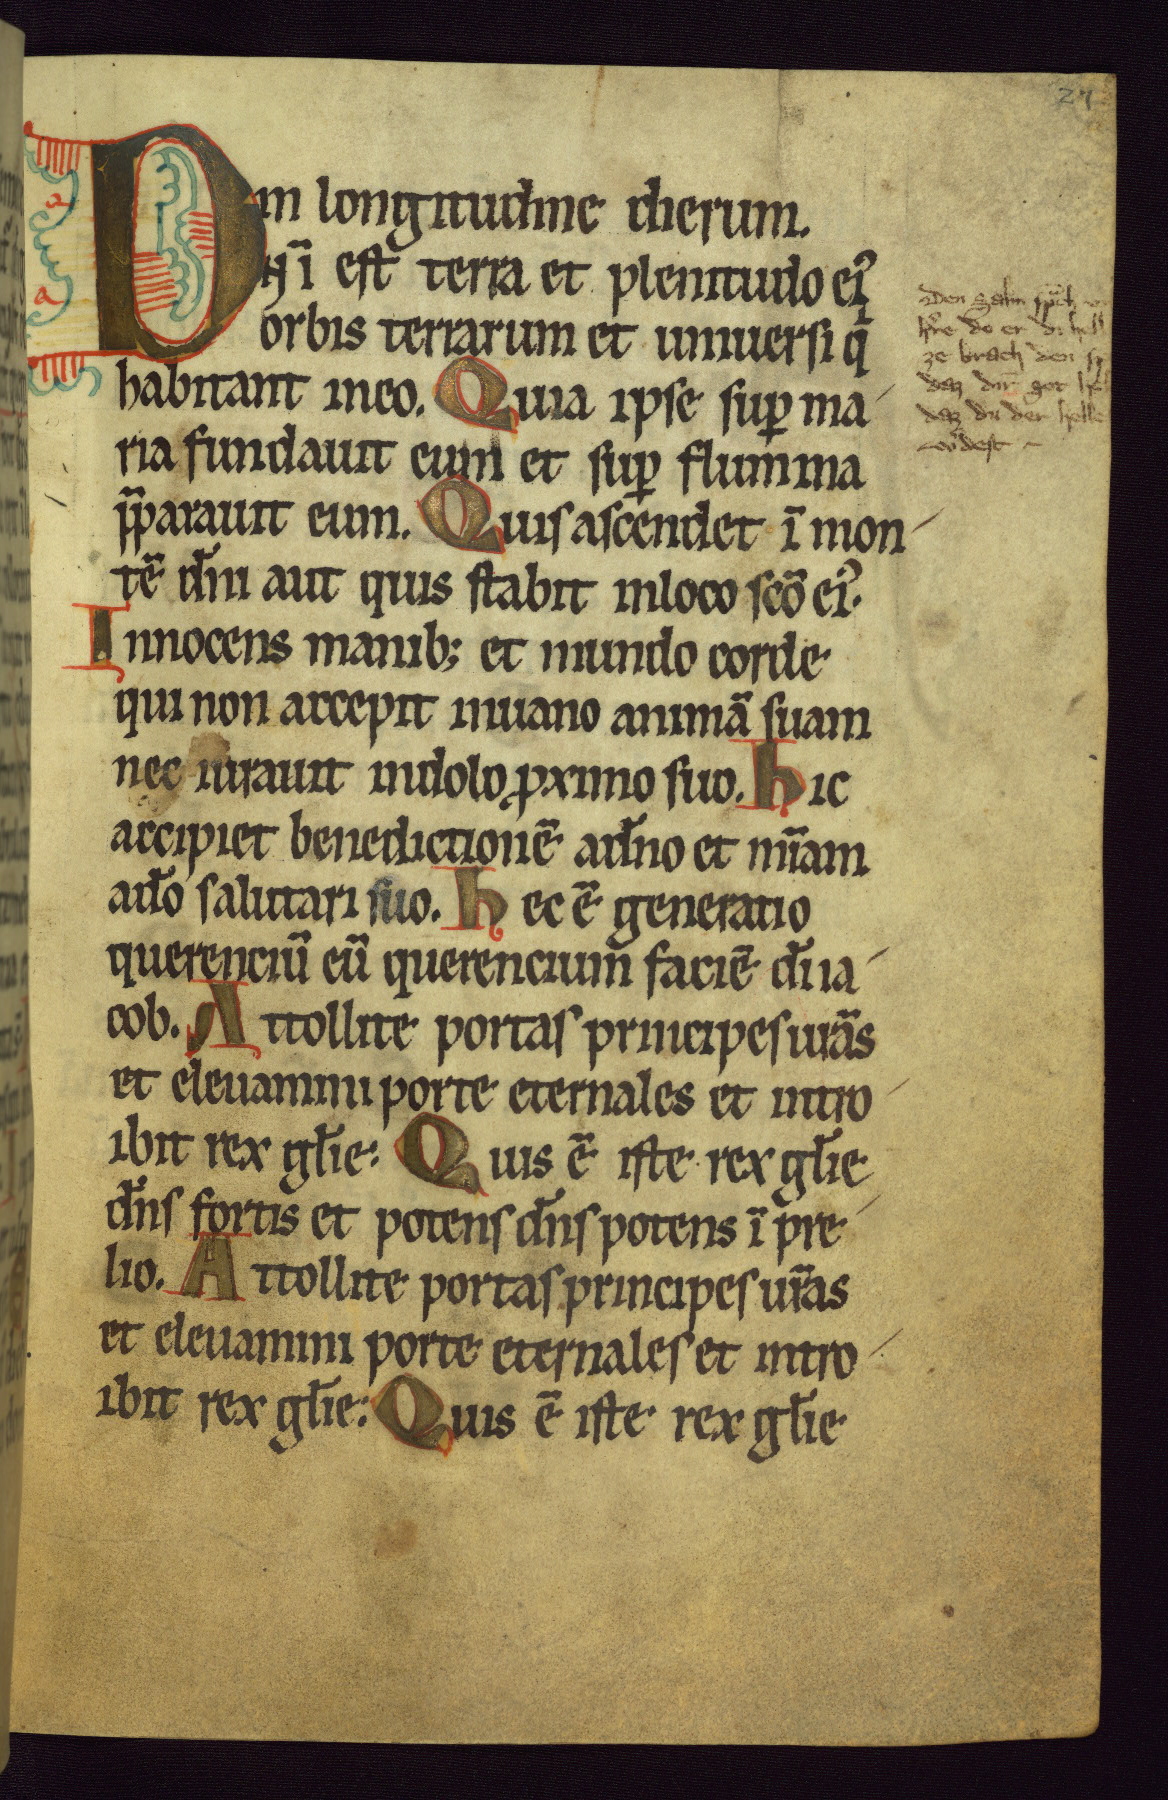 27
in longitudine dierum.
DNĪ est terra et plenitudo eiꝰ
orbis terrarum et uniuersi q̄
habitant ineo. Quia ipse suꝑ ma
ria fundauit eum et suꝑ flumina
p̄parauit eum. Quis ascendet ī mon
tē dn̄i aut quis stabit inloco scō eiꝰ.
Innocens manib; et mundo corde
qui non accepit inuano animā suam
nec iurauit indolo ꝓximo suo. hic
accipiet benedictionē adn̄o et mīam
ado̅ salutari suo. hec ē generatio
querenciū eū querencium faciē di̅ ia
cob. Attollite portas principes ur̄as
et eleuamini porte eternales et intro
ibit rex gl̄ie: Quis ē iste rex gl̄ie
dn̄s fortis et potens dn̄s potens ī pre
lio. Attollite portas principes ur̄as
et eleuamini porte eternales et intro
ibit rex gl̄ie: Quis ē iste rex gl̄ie
Den salm
do er di hell
ze brach den
daz got
daz du der helle